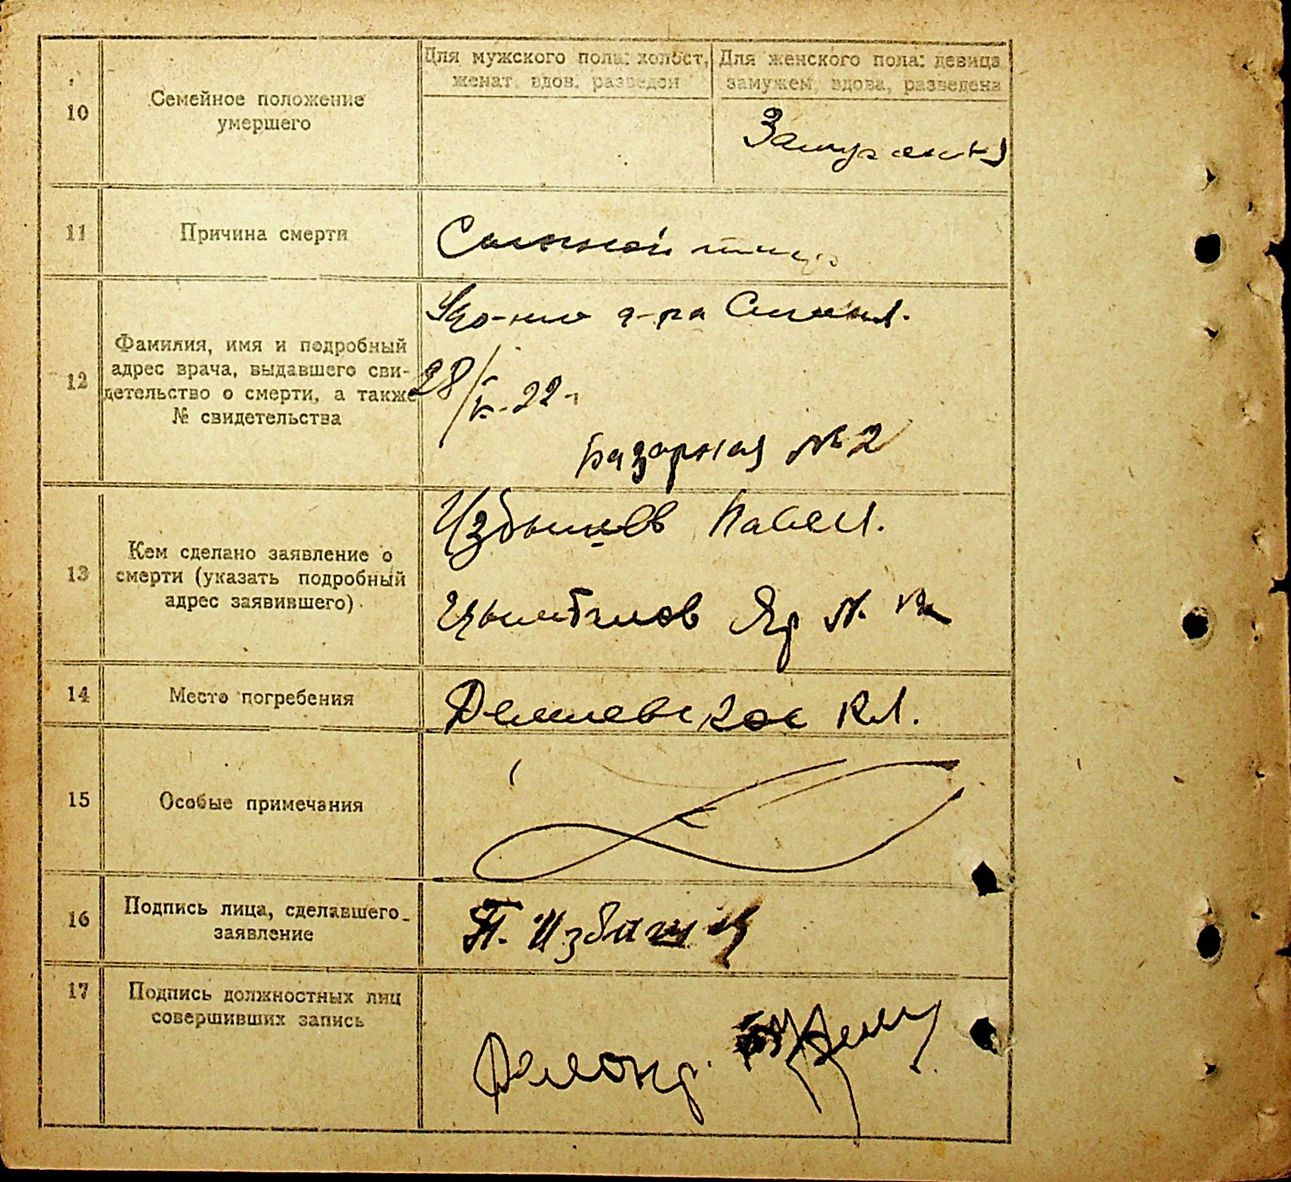 10
Семейное положение
умершего
Для мужского пола: холост,
женат, вдов, разведен
Для женского пола: девица
замужем, вдова, разведена
Замужняя
11
Причина смерти
Сыпной тиф
12
Фамилия, имя и подробный
адрес врача, выдавшего сви-
детельство о смерти, а также
№ свидетельства
д-ра
28/V-22
Базарная № 2
13
Кем сделано заявление о
смерти (указать подробный
адрес заявившего)
Избышев Павел.
Цымбалов Яр №
14
Место погребения
Демиевское кл.
15
Особые примечания
16
Подпись лица, сделавшего
заявление
П.
17
Подпись должностных лиц
совершивших запись